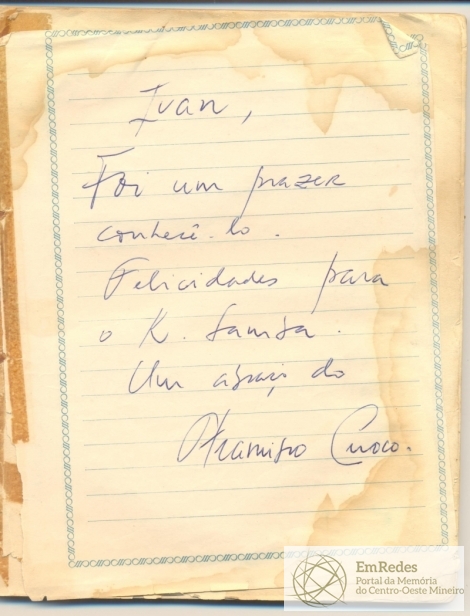 Ivan,
Foi um prazer
conhecê-lo.
Felicidades para
o K. Samba.
Um abraço do
Francisco Cuoco.
EmRedes
Portal da Memória
do Centro-Oeste Mineiro